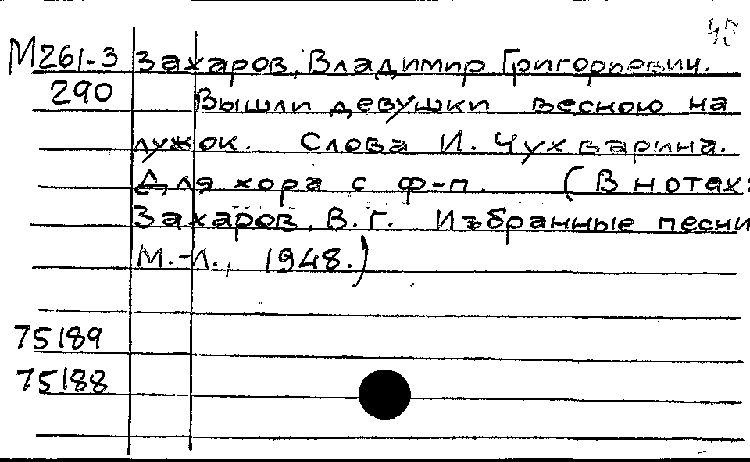 М261-3 Захаров, Владимир Григорьевич.
290 Вышли девушки весною на
лужок. Слова И. Чухварина.
Для хора с ф-п. (В нотах:
Захаров, В.Г. Избранные песни
М.-Л., 1948.)
75189
75188